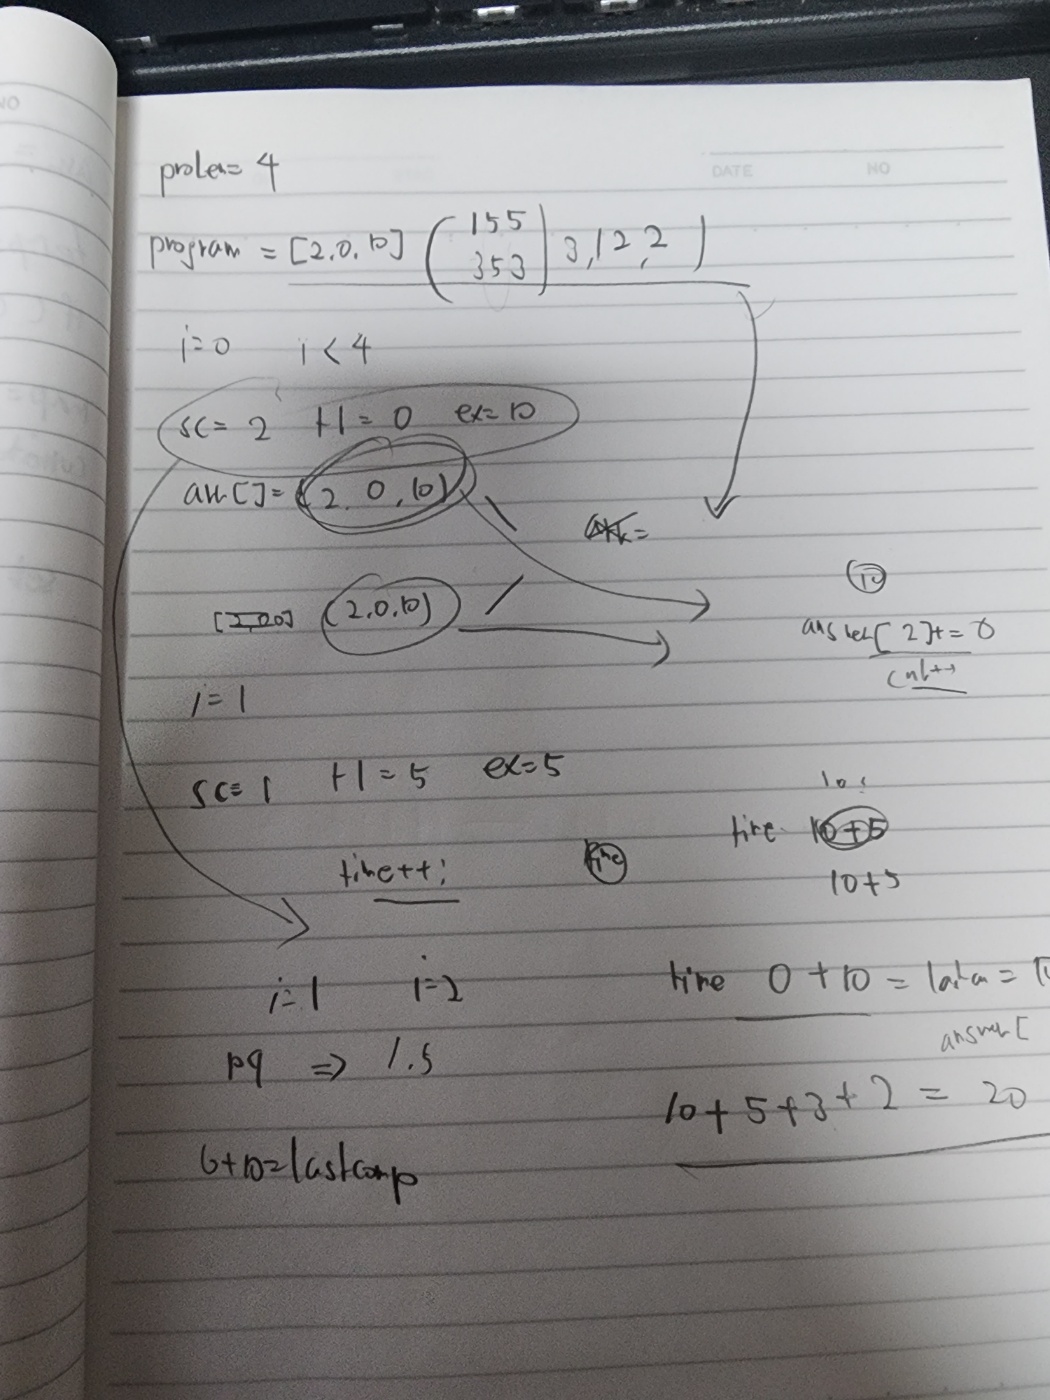 NO
DATE NO
prolen= 4
program = [2,0,10] ( 155 353 ) 3,12,2 )
i=0 i<4
sc= 2 t1= 0 ex= 10
arr[]= (2, 0, 10)
(2,0,10)
10
answer[2]+= 0
cnt++
i=1
sc= 1 t1= 5 ex=5
time 10+5
time++;
10+5
i=1 i=2
time 0+10 =
pq => 1.5
answer[
10+5+3+2 = 20
0+10=lastcomp